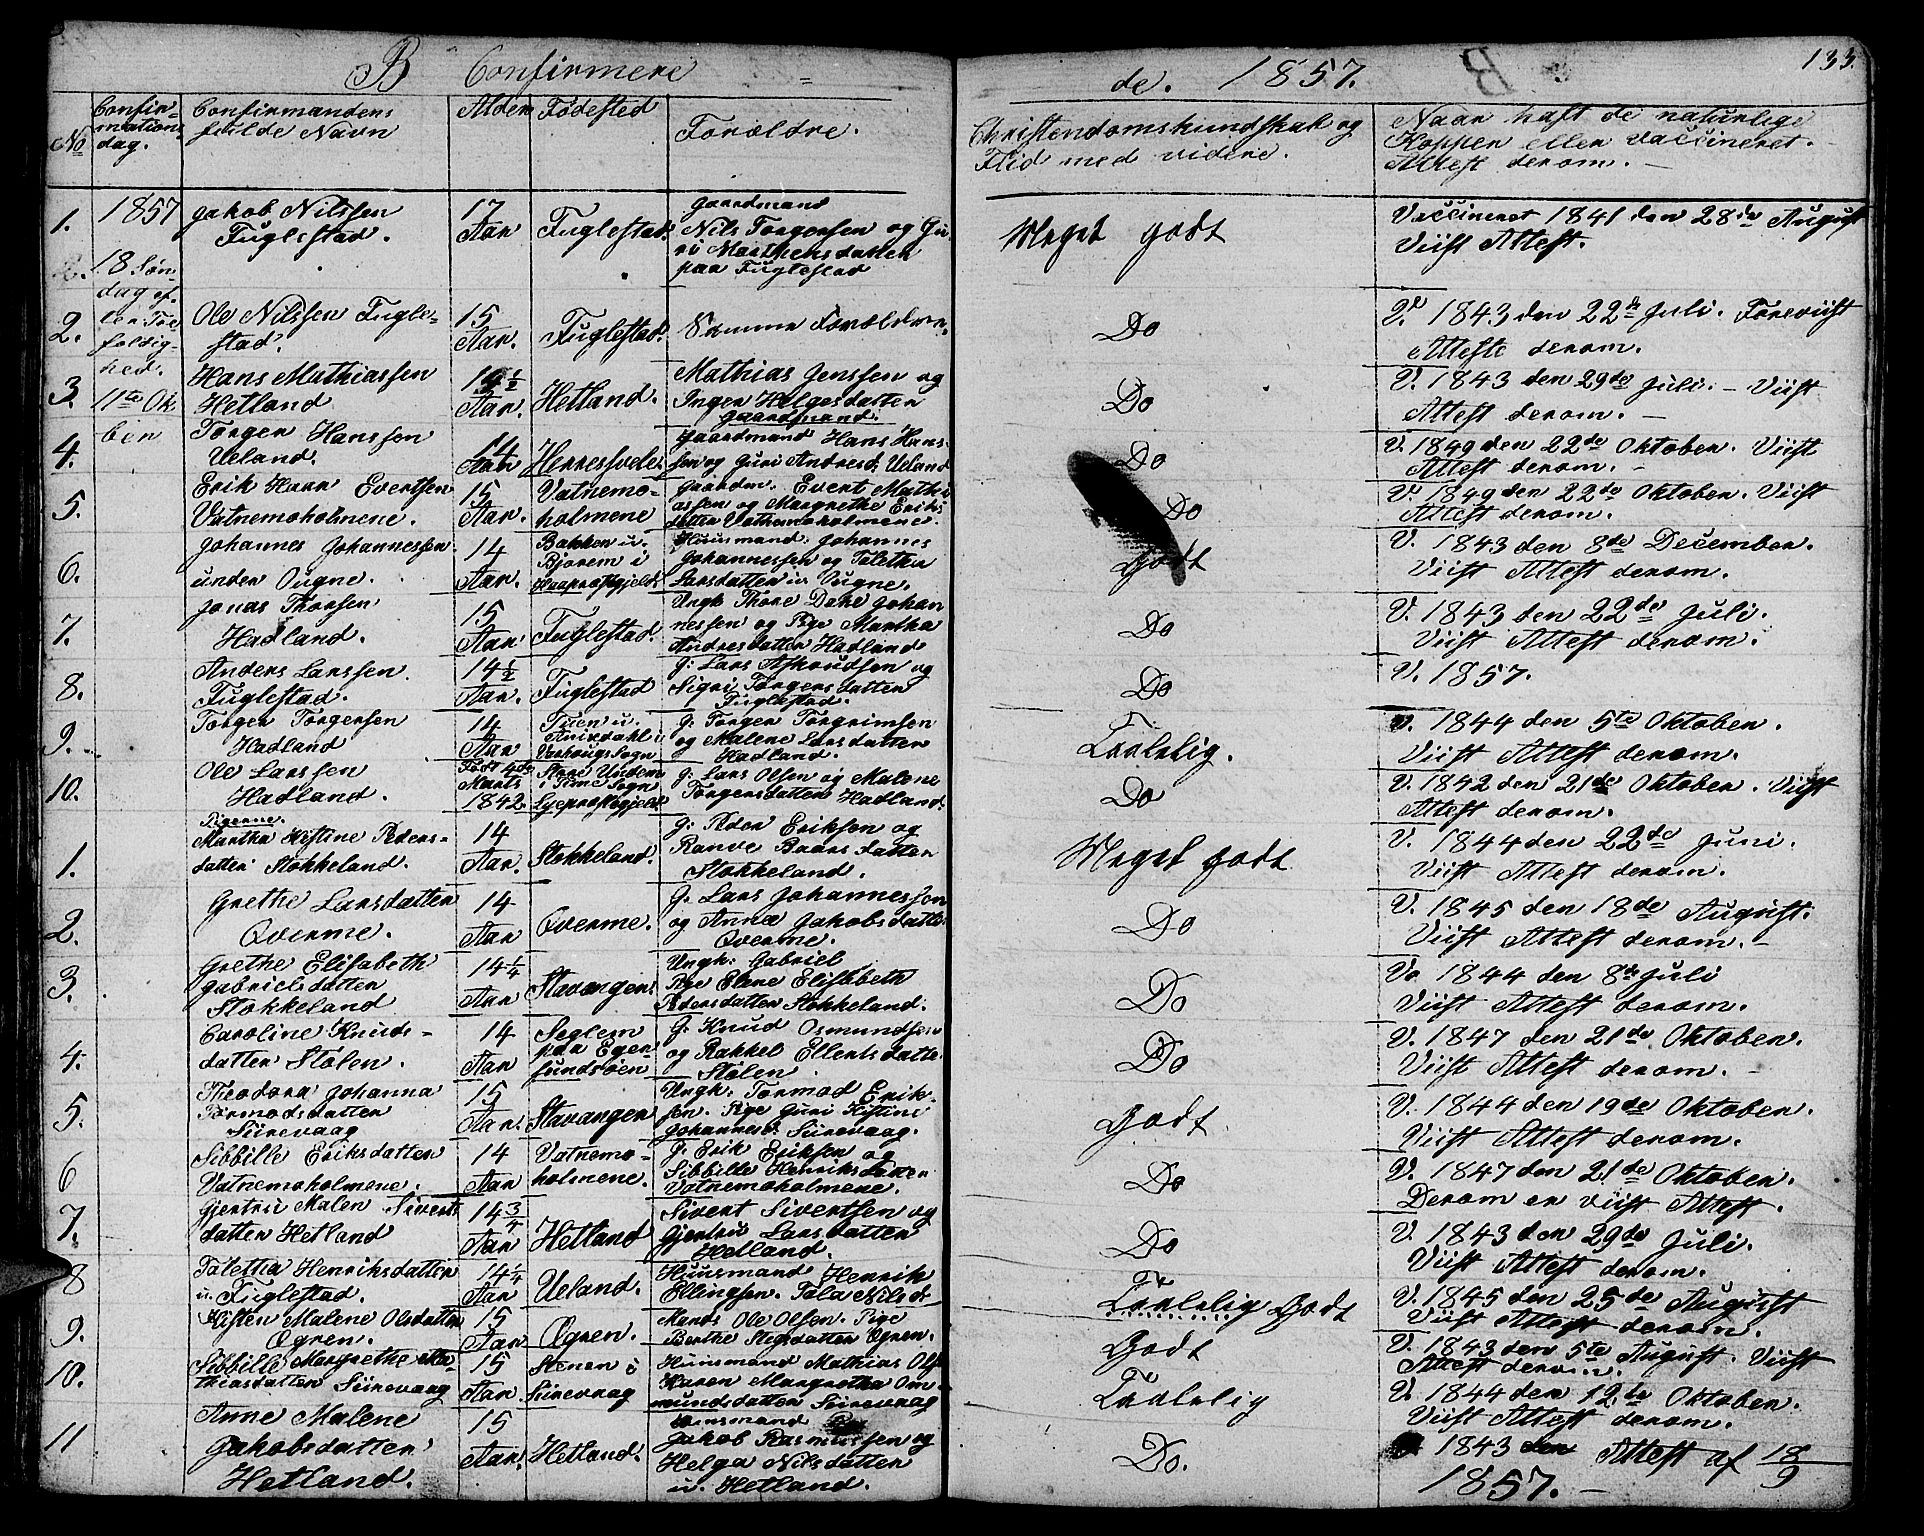 B Confirmere = de. 1857. 133.
No
Confirmations dag.
Confirmandens fulde Navn
Alder
Fødested
Forældre.
Christendomskundskab og Flid med videre.
Naar haft de naturlige Kopper eller Vaccineret. Attest derom. –
1. 1857 Jakob Nilssen Fuglestad. 17 Aar Fuglestad. Gaardmand Nils Torgersen og Guri Marthensdatter paa Fuglestad Meget godt Vaccineret 1841 den 28de August Viist Attest.
18 Søndag efter Trefoldighed. 11te Okber
2. Ole Nilssen Fuglestad. 15 Aar. Fuglestad. Samme Forældre. Do V. 1843 den 22de Juli. Foreviist Atteste derom.
3. Hans Mathiassen Hetland 14½ Aar. Hetland. Mathias Jenssen og Inger Helgesdatter Gaardmand. Do V. 1843 den 29de Juli. – Viist Attest derom. –
4. Torger Hanssen Ueland. 14 Aar Gaardmand Hans Hanssen og Guri Andresd. Ueland Do V. 1849 den 22de Oktober. Viist Attest derom. –
5. Erik Haar Evertsen Vatnemoholmene. 15 Aar. Vatnemoholmene Gaardm. Evert Mathiassen og Margrethe Eriksdatter Vatnemoholmene. Do V. 1849 den 22de Oktober. Viist Attest derom.
6. Johannes Johannessen under Ougne. 14 Aar. Bakken u. Bjorem i Huusmand Johannes Johannessen og Taletha Larsdatter u. Ougne. Godt V. 1843 den 8de December. Viist Attest derom.
7. Jonas Thorsen Hadland. 15 Aar Fuglestad. Ungk. Thore Johannessen og Pige Martha Andresdatter Hadland Do V. 1843 den 22de Juli. Viist Attest derom.
8. Anders Larssen Fuglestad. 14½ Aar. Fuglestad G. Lars Asknudsen og Sigri Torgersdatter Fuglestad. Do V. 1857.
9. Torger Torgersen Hadland 14 Aar u. i Varhoug Sogn G. Torger Torgrimsen og Malene Larsdatter Hadland. Taalelig. V. 1844 den 5te Oktober. Viist Attest derom.
10. Ole Larssen Hadland. Født 4de Marts 1842. Store Undem i Time Sogn G. Lars Olsen og Malene Torgersdatter Hadland. Do V. 1842 den 21de Oktober. Viist Attest derom.
Pigerne.
1. Martha Kistine Pedersdatter Stokkeland. 14 Aar. Stokkeland. G. Peder Eriksen og Ranve Baarsdatter Stokkeland. Meget godt V. 1844 den 22de Juni. Viist Attest derom.
2. Grethe Larsdatter Qverme. 14 Aar Qverme. G. Lars Johannessen og Anna Jakobsdatter Qverme. Do V. 1845 den 18de August. Viist Attest derom. –
3. Grethe Elisabeth Gabrielsdatter Stokkeland 14¼ Aar Stavanger Ungk. Gabriel Pige Elene Elisabeth Pedersdatter Stokkeland. Do V. 1844 den 8de Juli Viist Attest derom.
4. Caroline Knudsdatter Stolen. 14 Aar Seglem paa Egersundsøen G. Knud Osmundsen og Rakkel Ellertsdatter Stolen. Do V. 1847 den 21de Oktober. Viist Attest derom.
5. Theodora Johanna Tormodsdatter Siirevaag 15 Aar. Stavanger Ungk. Tormod Eriksen. Pige Guri Kistine Johannesd. Siirevaag. Godt V. 1844 den 19de Oktober. Viist Attest derom.
6 Sibbille Eriksdatter Vatnemoholmene. 14 Aar Vatnemoholmene. G. Erik Eriksen og Sibbille Henriksdatter Vatnemoholmene. Do V. 1847 den 21de Oktober. Derom er viist Attest.
7. Gjertrù Malen Sivertsdatter Hetland 14¾ Aar Hetland Sivert Sivertsen og Gjertrù Larsdatter Hetland. Do V. 1843 den 29de Juli. Viist Attest derom.
8 Taletha Henriksdatter u. Fuglestad. 14¼ Aar Ueland. Huusmand Henrik Ellingsen. Tala Nilsd. Taalelig Godt V. 1845 den 25de August Viist Attest derom.
9. Kisten Malene Olsdatter Ogren. 15 Aar Ogren. Mands Ole Olsen. Pige Berthe Ogren. Godt V. 1843 den 5te August. Viist Attest derom.
10. Sibbille Margrethe Mathiasdatter Siirevaag 15 Aar i Siirevaag Huusmand Mathias Karen Margretha Ommundsdatter Siirevaag Taalelig V. 1844 den 12te Oktober. Viist Attest derom.
11 Anne Malene Jakobsdatter Hetland. 15 Aar. Hetland. Huusmand Jakob Rasmussen og Helga Nilsdatter u. Hetland. Do. 1843 den Attest af 18/9 1857. –